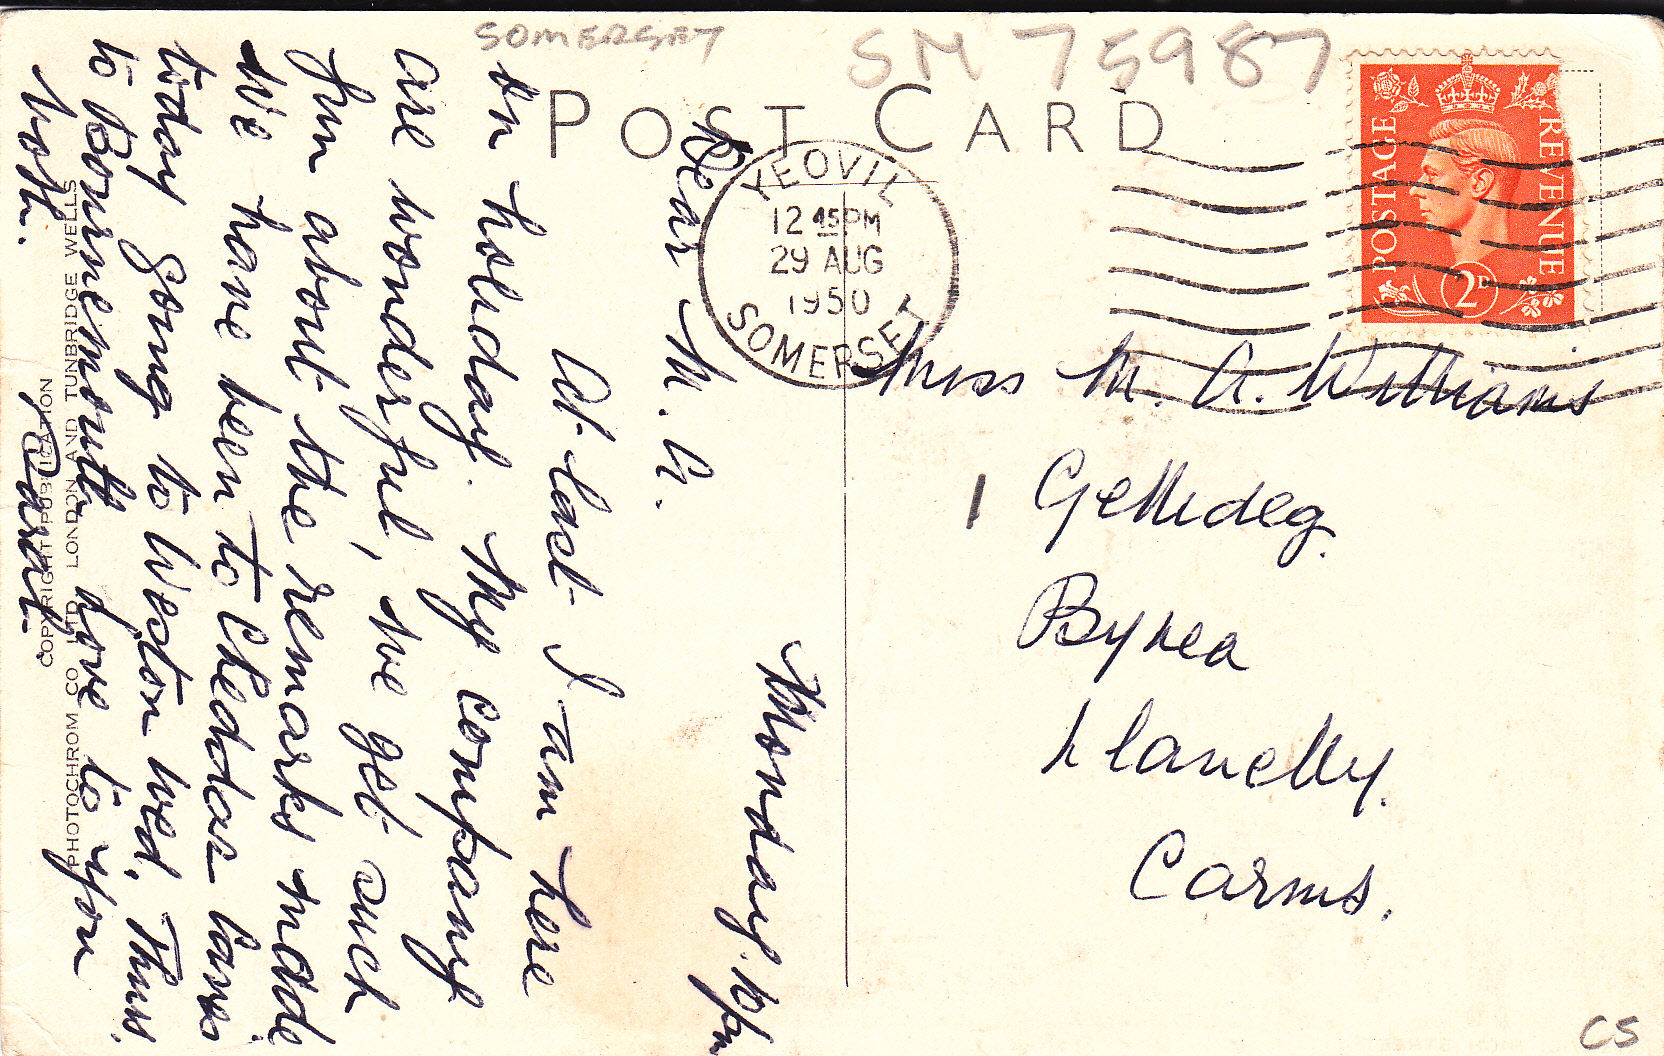 SOMERSET
SM 75987
POST CARD
POSTAGE
REVENUE
2D
YEOVIL
12 45 PM
29 AUG
1950
SOMERSET
Monday. 10pm
Dear M. A.
At last I am here
on holiday. My company
are wonderful, we get such
fun about the remarks made
We have been to Cheddar Caves
today going to Weston Wed, Thurs.
to Bournemouth love to you
both.
Miss M. A. Williams
1 Gellideg.
Bynea
Llanelly.
Carms.
COPYRIGHT PUBLICATION
PHOTOCHROM CO. LTD. LONDON AND TUNBRIDGE WELLS
CS